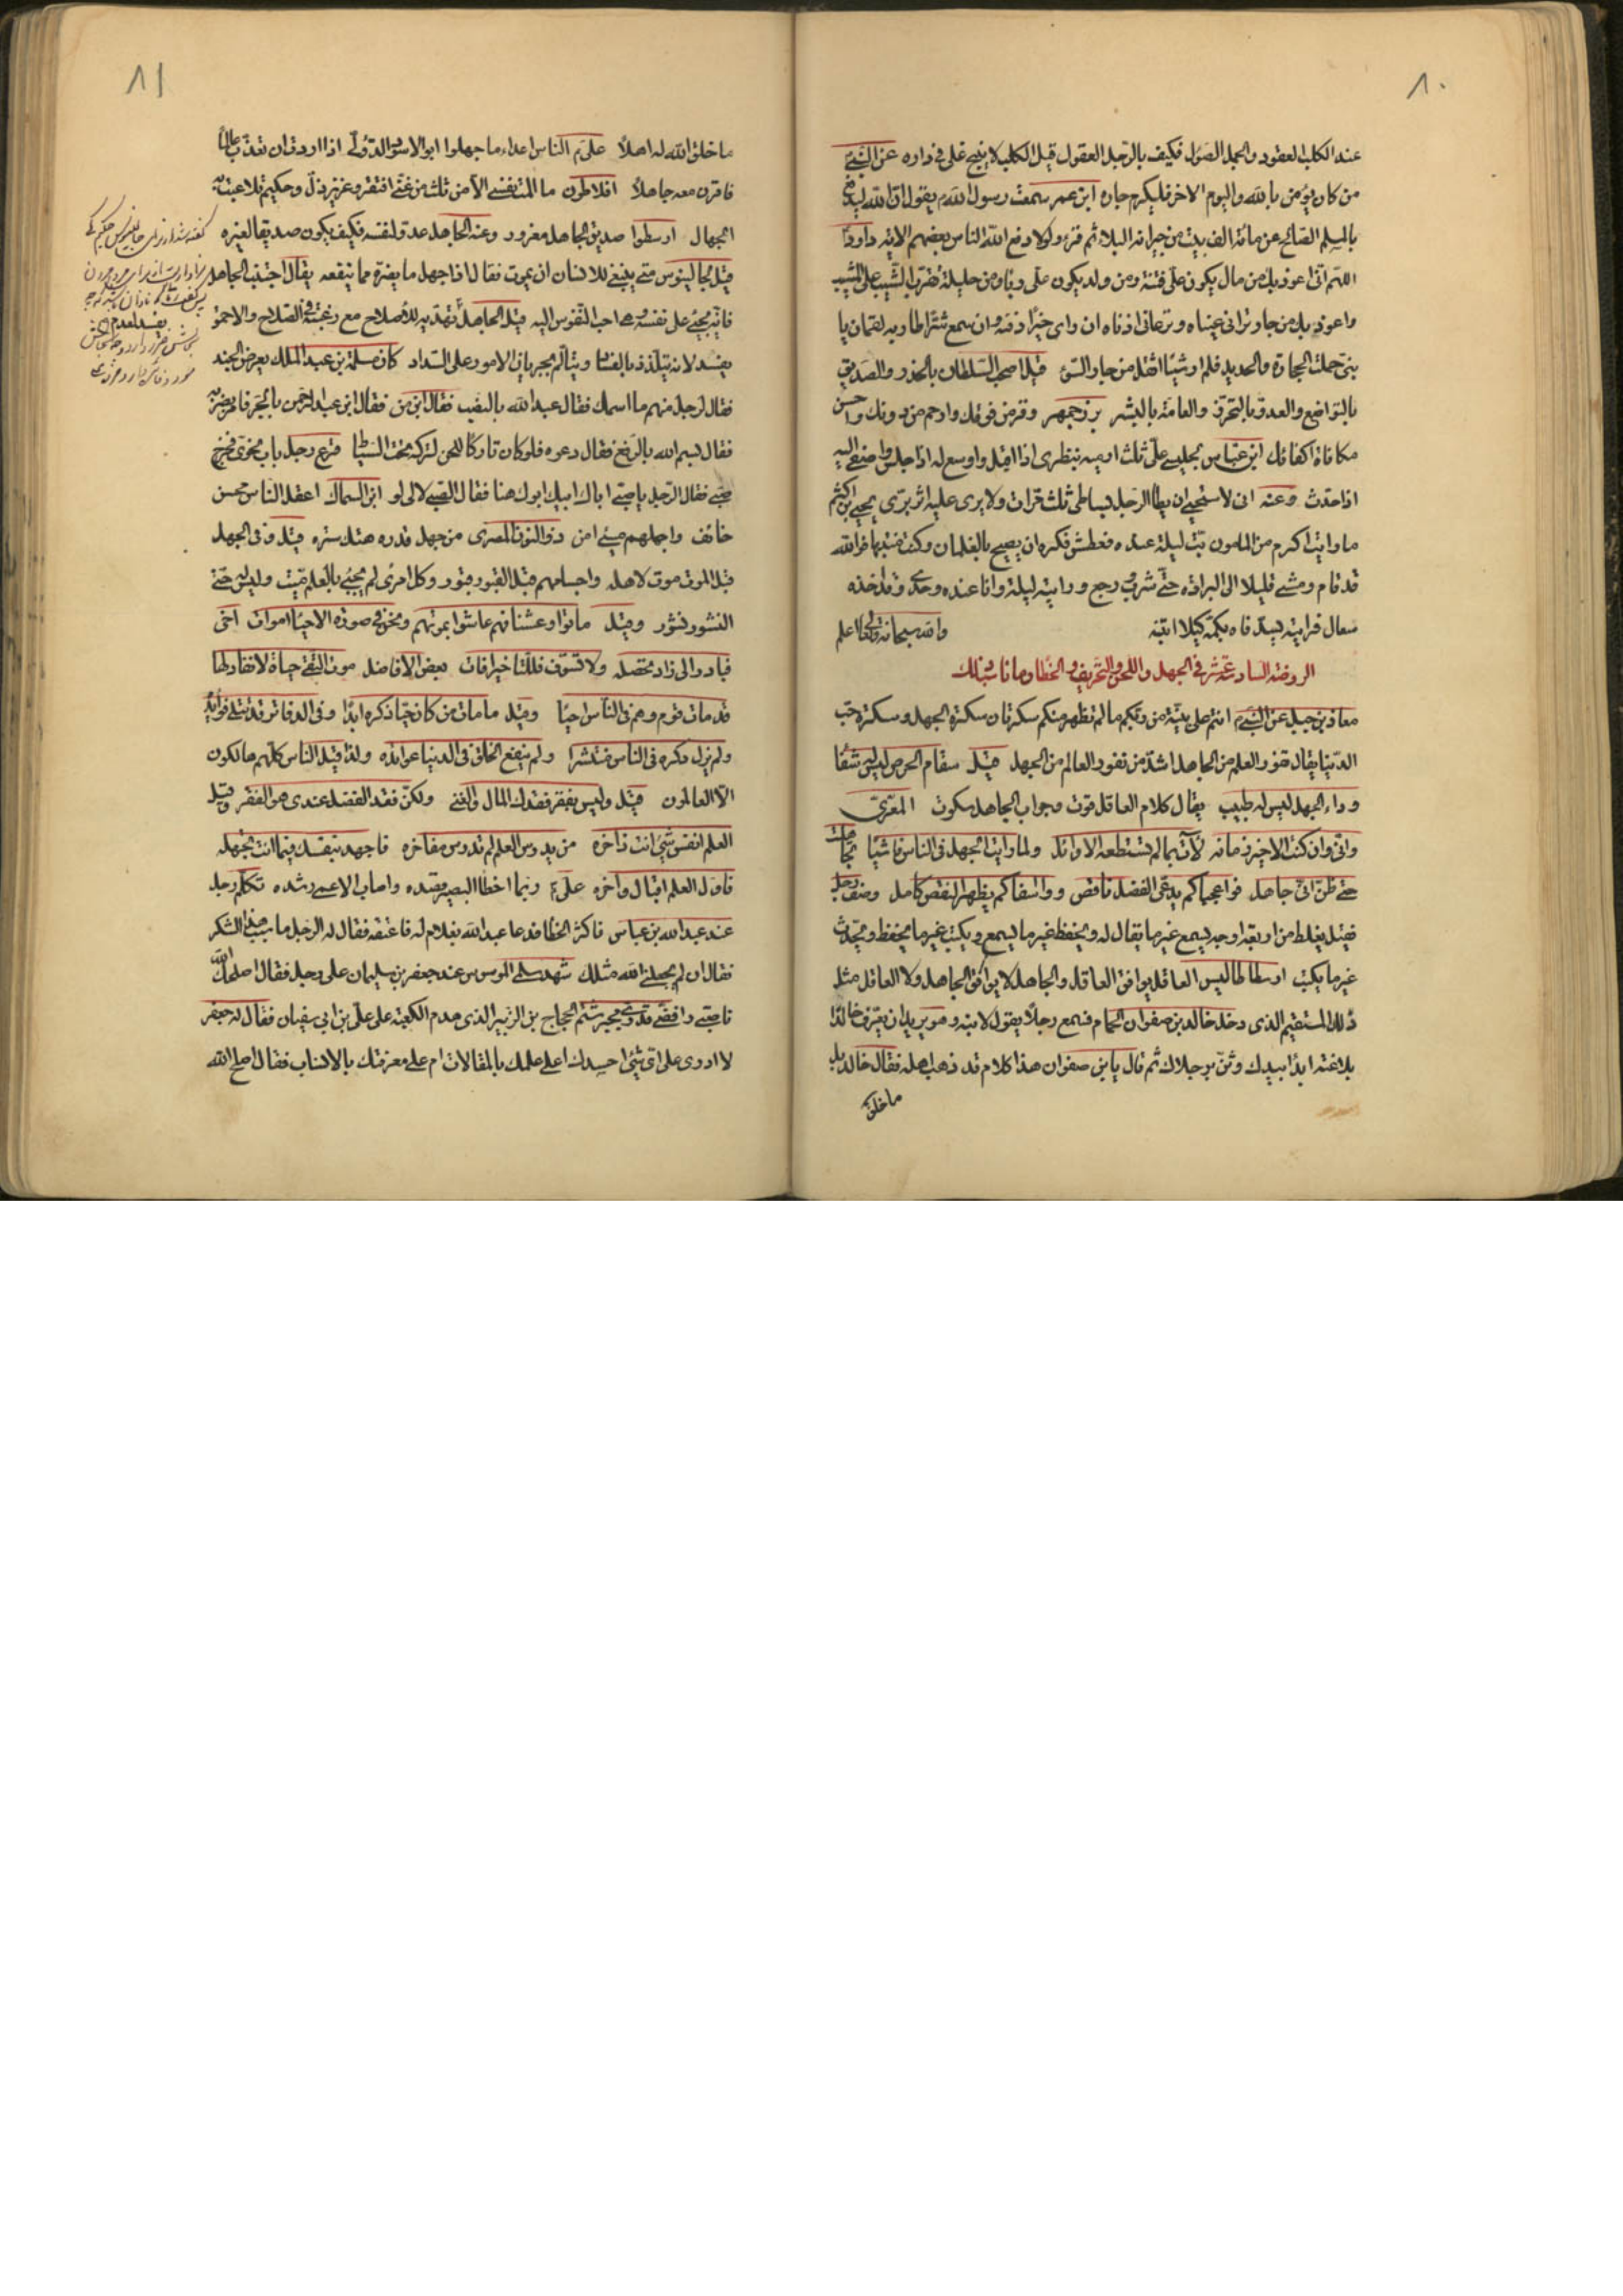 ٨٠
عند الكلب العقور والجمل الصؤل فكيف بالرجل العقول قيل الكلب لا ينبح على من فى داره عن النبى
من كان يؤمن بالله واليوم الاخر فليكرم جاره ابن عمر سمعت رسول الله م يقول ان الله ليدفع
بالمسلم الصالح عن مائة الف بيت من جيرانه البلاء ثم قرء ولولا دفع الله الناس بعضهم الاية داود
اللهم انى اعوذ بك من مال يكون على فتنة ومن ولد يكون على ربا ومن حليلة تقرب الشيب على المشيب
واعوذ بك من جار ترانى عيناه وترعانى اذناه ان راى خيرا دفنه وان سمع شرا طار به لقمان يا
بنى حملت الحجارة والحديد فلم ار شيئا اثقل من جار السوء قيل اصحب السلطان بالحذر والصديق
بالتواضع والعدو بالتحرز والعامة بالبشر بزرجمهر وقر من فوقك وارحم من دونك واحسن
مكافاة اكفائك ابن عباس لجليسى على ثلث ارميه بنظرى اذا اقبل واوسع له اذا جلس واصغى اليه
اذا حدث وعنه انى لاستحيى ان يطأ الرجل بساطى ثلث مرات ولا يرى عليه اثر برى يحيى بن اكثم
ما رايت اكرم من المامون بت ليلة عنده فعطش فكره ان يصيح بالغلمان وكنت منتبها فرايته
قد قام ومشى قليلا الى البرادة حتى شرب ورجع ورايته ليلة وانا عنده وحدى وقد اخذه
سعال فرايته يسد فاه بكمه كيلا انتبه والله سبحانه وتعالى اعلم
الروضة السادسة عشر فى الجهل واللحن والتحريف والخطا وما ناسب ذلك
معاذ بن جبل عن النبى م انتم على بينة من ربكم ما لم تظهر منكم سكرتان سكرة الجهل وسكرة حب
الدنيا يقال نفور العلم من الجاهل اشد من نفور العالم من الجهل قيل سقام الحرص ليس له شفا
وداء الجهل ليس له طبيب يقال كلام العاقل قوت وجواب الجاهل سكوت المعرى
وانى وان كنت الاخير زمانه لآت بما لم تستطعه الاوائل ولما رايت الجهل فى الناس فاشيا تجاهلت
حتى ظن انى جاهل فواعجبا كم يدعى الفضل ناقص ووا اسفا كم يظهر النقص كامل وصف رجل
فقيل يغلط من اربعة اوجه يسمع غير ما يقال له ويحفظ غير ما يسمع ويكتب غير ما يحفظ ويحدث
غير ما يكتب ارسطاطاليس العاقل يوافق العاقل والجاهل لا يوافق الجاهل ولا العاقل مثل
ذلك المستقيم الذى دخل خالد بن صفوان الحمام فسمع رجلا يقول لابنه وهو يريد ان يعرف خالدا
بلاغته ابدأ بيديك وثن برجلاك ثم قال يا بن صفوان هذا كلام قد ذهب اهله فقال خالد بل
ما خلق
٨١
ما خلق الله له اهلا على م الناس اعداء ما جهلوا ابو الاسود الدؤلى اذا اردت ان تعذب عالما
فاقرن معه جاهلا افلاطون ما المت نفسى الا من ثلث من غنى افتقر وعزيز ذل وحكيم تلاعبت به
الجهال ارسطوا صديق الجاهل مغرور وعنه الجاهل عدو لنفسه فكيف يكون صديقا لغيره
قيل لجالينوس متى ينبغى للانسان ان يموت فقال اذا جهل ما يضره مما ينفعه يقال اجتنب الجاهل
فانه يجنى على نفسه وهى احب النفوس اليه قيل الجاهل تهذيبه للاصلاح مع رغبته فى الصلاح والاحمق
يفسد لانه يتلذذ بالفساد ويتألم بجريان الامور على السداد كان مسلمة بن عبد الملك يعرض الجند
فقال لرجل منهم ما اسمك فقال عبد الله بالنصب فقال ابن من فقال ابن عبد الرحمن بالجر فامر بضربه
فقال بسم الله بالرفع فقال دعوه فلو كان تاركا للحن لتركه تحت السياط قرع رجل باب نحوى فخرج
صبى فقال الرجل يا صبى اباك ابيك ابوك هنا فقال الصبى لا لى لو ابن السماك اعقل الناس محسن
خائف واجهلهم مسئ امن ذو النون المصرى من جهل قدره هتك ستره قيل وفى الجهل
قبل الموت موت لاهله واجسامهم قبل القبور قبور وكل امرئ لم يحيى بالعلم ميت وليس له حتى
النشور نشور وقيل ماتوا وعشنا فهم عاشوا بموتهم ونحن فى صورة الاحياء اموات اخى
فبادر الى زاد تحصله ولا تسوف فللتاخير افات بعض الافاضل موت التقى حياة لا نفاد لها
قد مات قوم وهم فى الناس احيا وقيل ما مات من كان حيا ذكره ابدا وفى الدفاتر قد تتلى فوائده
ولم يزل ذكره فى الناس منتشرا ولم ينفع الخلق فى الدنيا عوائده ولذا قيل الناس كلهم هالكون
الا العالمون قيل وليس بفقر فقدك المال والغنى ولكن فقد الفضل عندى هو الفقر وقيل
العلم انفس شئ انت ذاخره من يدرس العلم لم تدرس مفاخره فاجهد بنفسك فيما انت تجهله
فاول العلم اقبال واخره على م ربما اخطا البصير قصده واصاب الاعمى رشده تكلم رجل
عند عبد الله بن عباس فاكثر الخطا فدعا عبد الله بغلام له فاعتقه فقال له الرجل ما سبب هذا الشكر
فقال ان لم يجعلنى الله مثلك شهد سلمى الموسوس عند جعفر بن سليمان على رجل فقال اصلحك الله
ناصبى رافضى قدرى مجبر شتم الحجاج بن الزبير الذى هدم الكعبة على على بن ابى سفيان فقال له جعفر
لا ادرى على اى شئ احسدك اعلى علمك بالمقالات ام على معرفتك بالانساب فقال اصلح الله